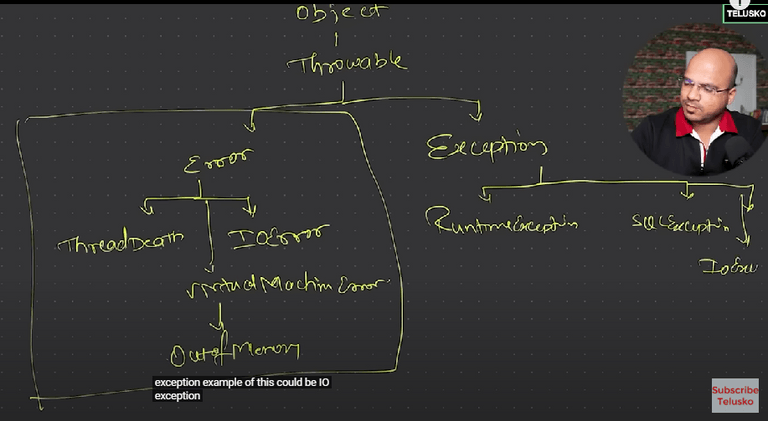 TELUSKO
Object
Throwable
Error
Exception
ThreadDeath
IOError
RuntimeException
SQLException
IOExce
VirtualMachinError
OutofMemory
exception example of this could be IO
exception
Subscribe
Telusko